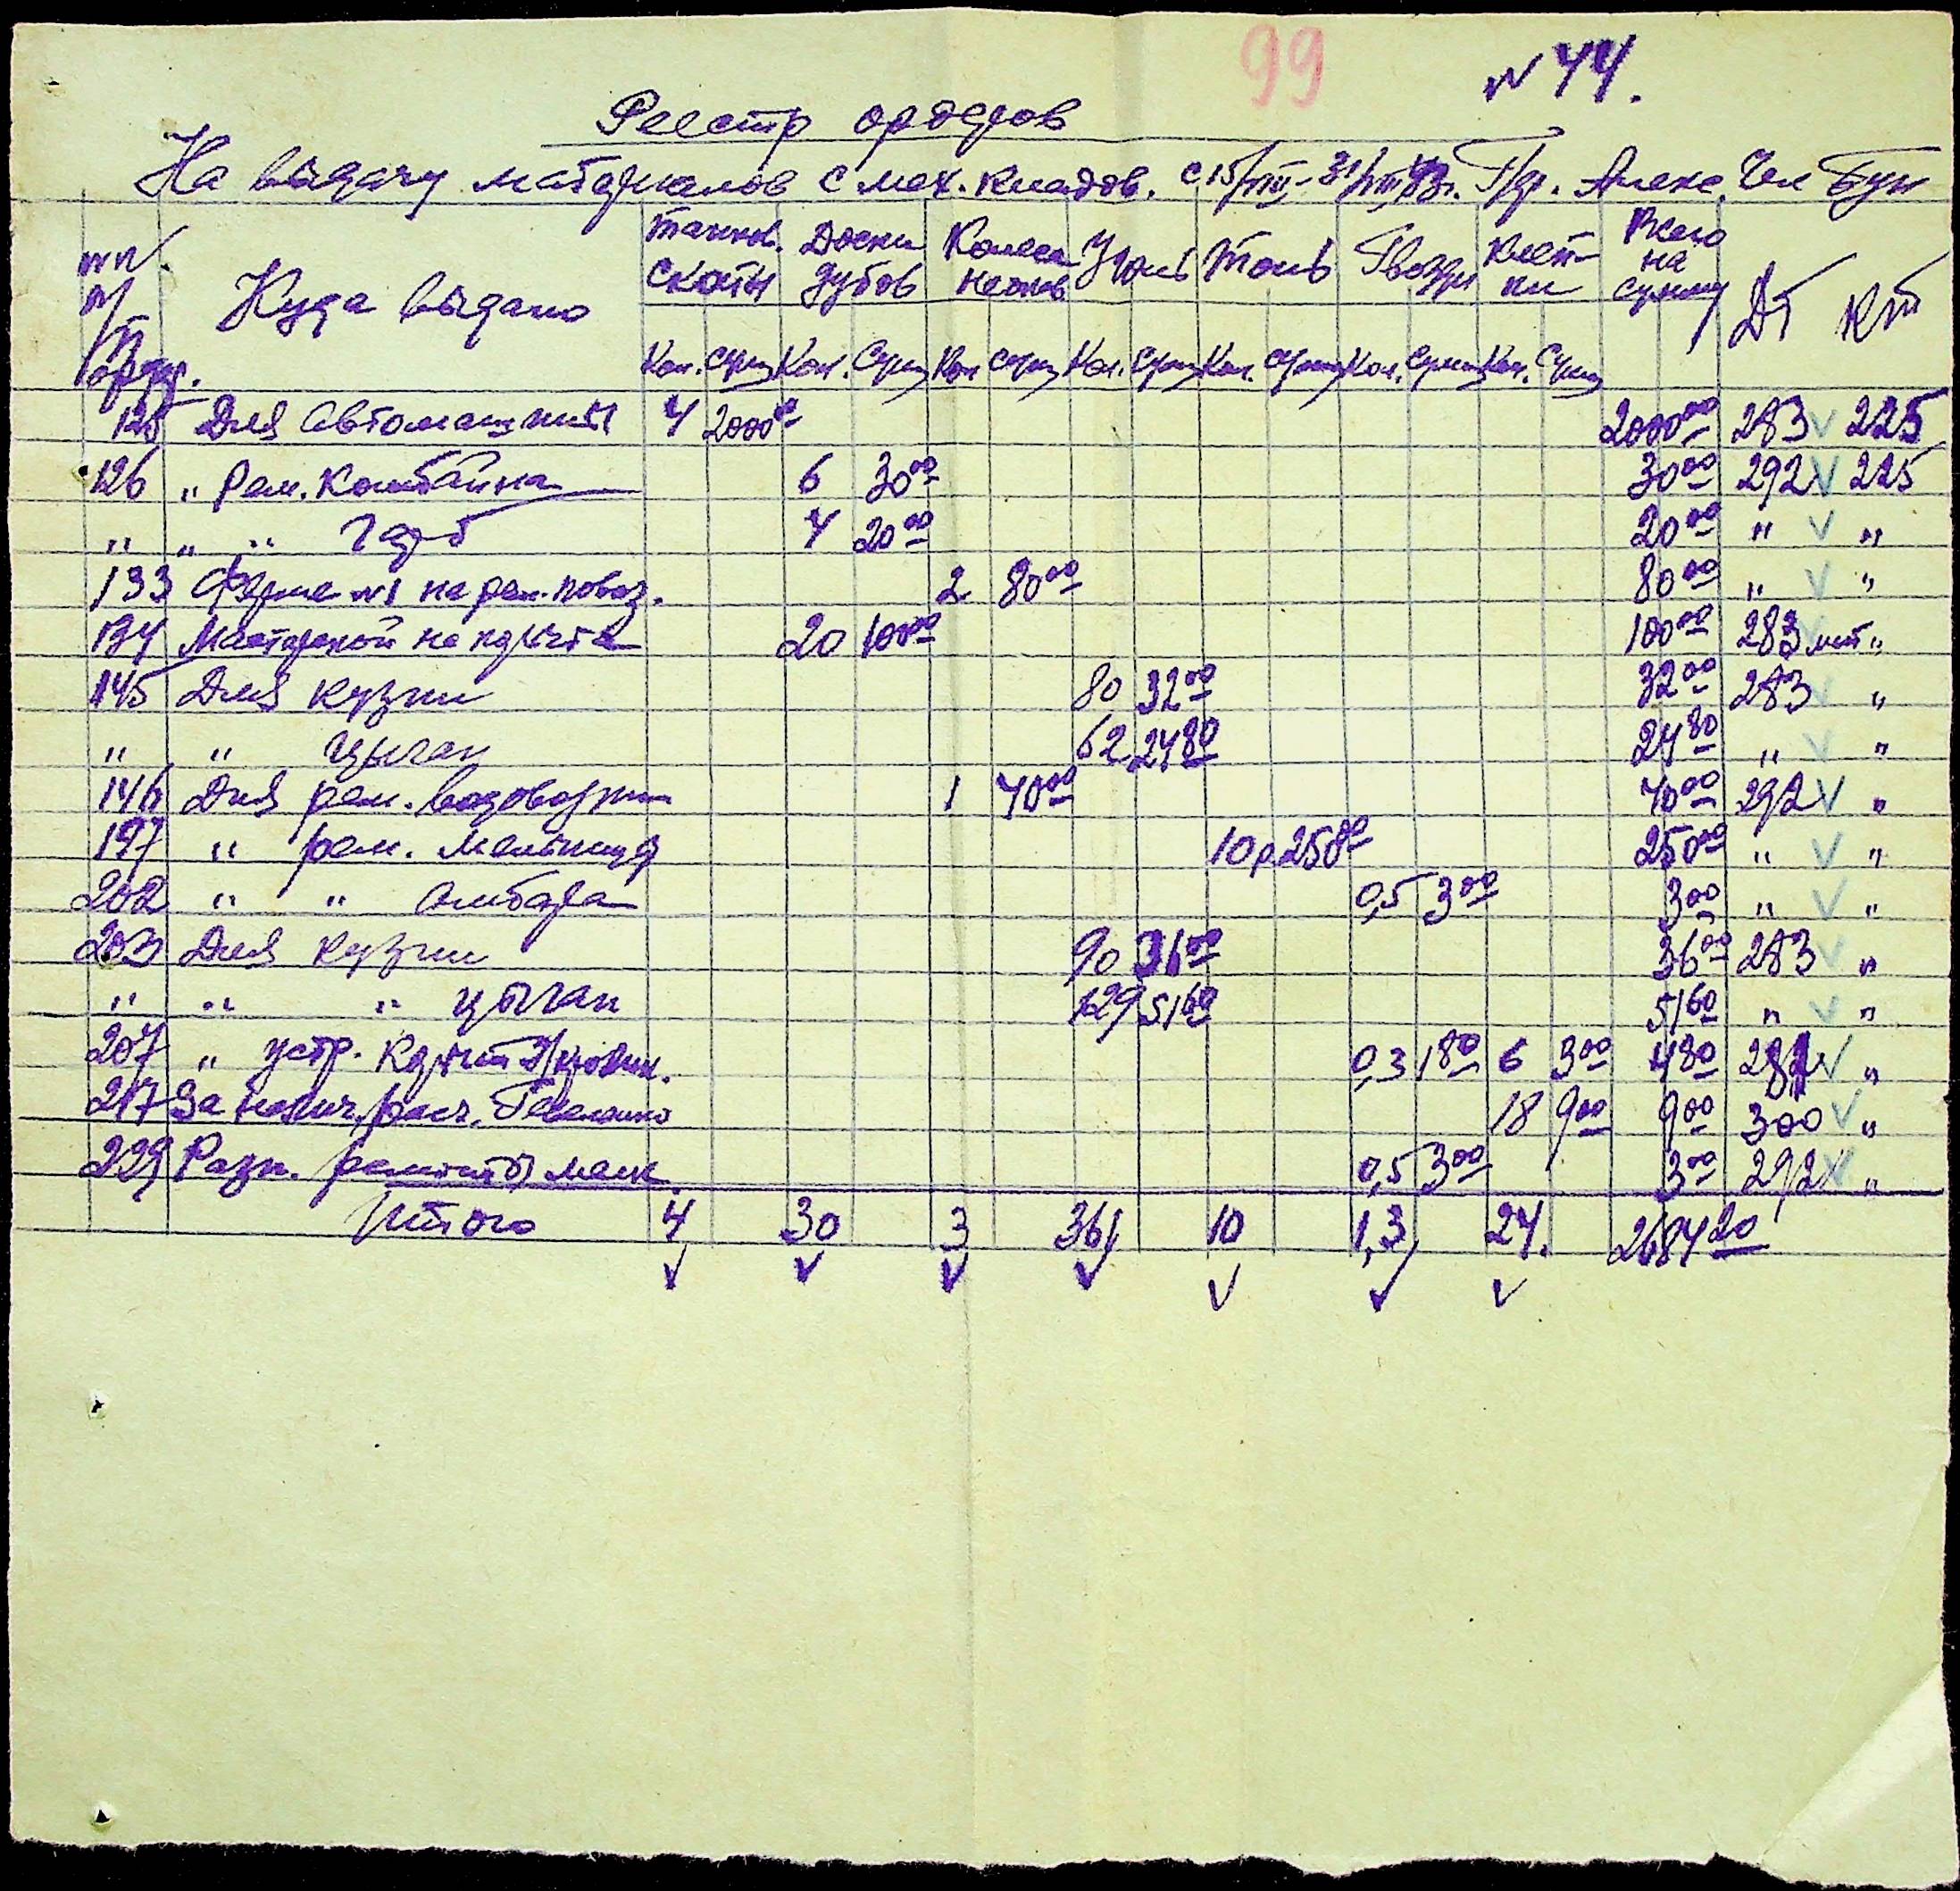 99
№ 44.
Реестр ордеров
На выдачу материалов с мех. кладов. с 15/VIII - 31/VIII 43г. Алекс. Чел Бун
Куда выдано
Танков. скаты Доски дубов Колеса Уголь Толь Гвозди Клепки Всего на сумму Дт Кт
Кол. Сум Кол. Сум Кол Сум Кол. Сум Кол. Сум Кол. Сум Кол. Сум
125 Для автомашины 4 2000 00 2000 00 283 V 225
126 " Рем. Комбайна 6 30 00 30 00 292 V 225
" " " Гарб 4 20 00 20 00 " V "
133 Ферме №1 на рем. повоз. 2 80 00 80 00 " V "
134 Мастерской на 20 100 00 100 00 283 "
145 Для кузни 80 32 00 32 00 283 V "
" " Цыган 62 24 80 24 80 " V "
146 Для рем. водовозки 1 40 00 40 00 292 V "
197 " рем. мельницы 10 р. 250 00 250 00 " V "
202 " " Амбара 0,5 3 00 3 00 " V "
203 Для кузни 90 36 00 36 00 283 V "
" " " цыган 129 51 60 51 60 " V "
207 " устр. 0,3 1 80 6 3 00 4 80 V "
217 За налич. расч. 18 9 00 9 00 300 V "
229 Разн. ремонты 0,5 3 00 3 00 292 V "
Итого 4 30 3 361 10 1,3 24. 2684 20